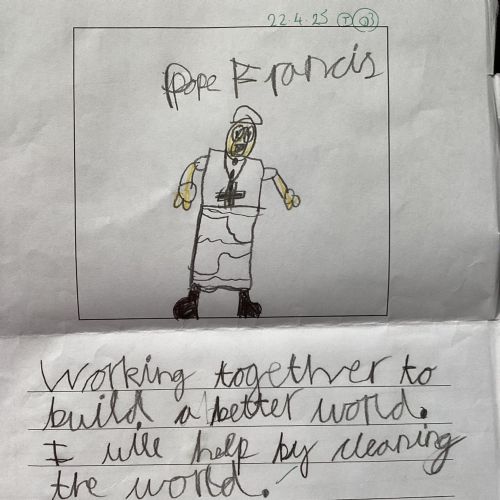 22.4.25 I
Pope Francis
Working together to
build a better world.
I will help by cleaning
the world.